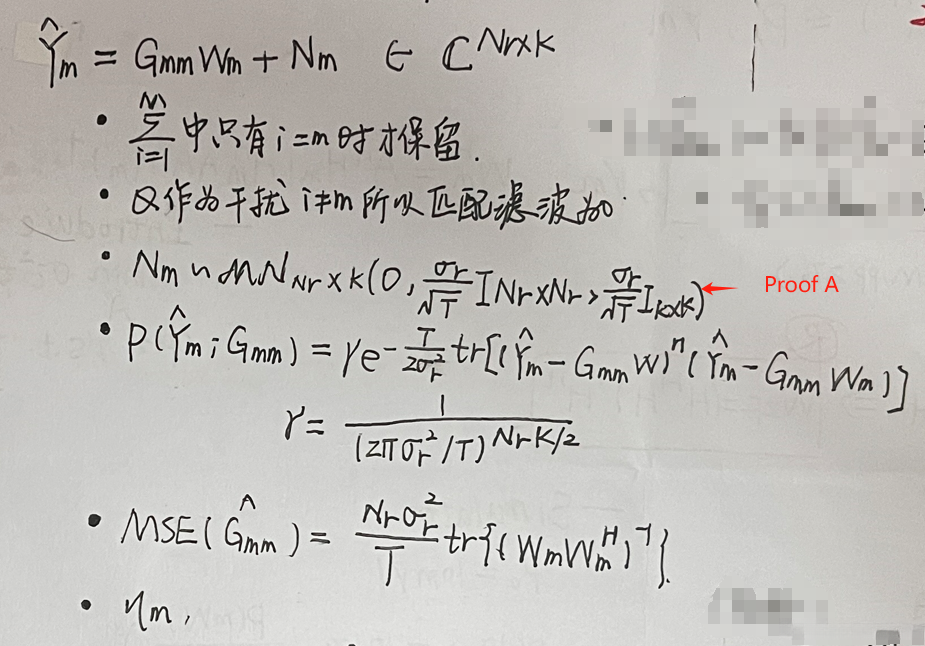 Ŷm = Gmm Wm + Nm ∈ ℂ^{Nr×K}
• Σ_{i=1}^{M} 中只有 i=m 时才保留.
• Q作为干扰 i≠m 所以匹配滤波为0.
• Nm ~ MN_{Nr×K}(0, σr/√T I_{Nr×Nr}, σr/√T I_{K×K}) ← Proof A
• P(Ŷm; Gmm) = γe^{-T/2σr²} tr[(Ŷm - Gmm W)^H (Ŷm - Gmm Wm)]
γ = 1/(2πσr²/T)^{NrK/2}
• MSE(Ĝmm) = Nrσr²/T tr{(Wm Wm^H)^{-1}}.
• ηm,